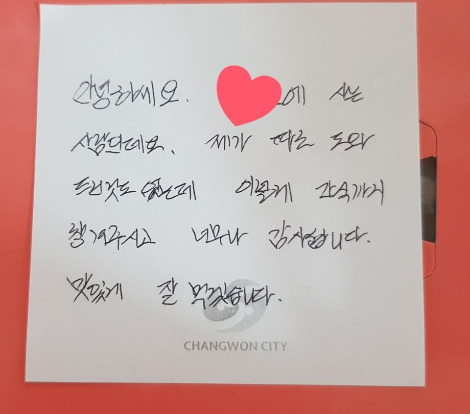 안녕하세요. 에 사는
사람인데요. 제가 따로 도와
드린것도 없는데 이렇게 간식까지
챙겨주시고 너무나 감사합니다.
맛있게 잘 먹겠습니다.
CHANGWON CITY